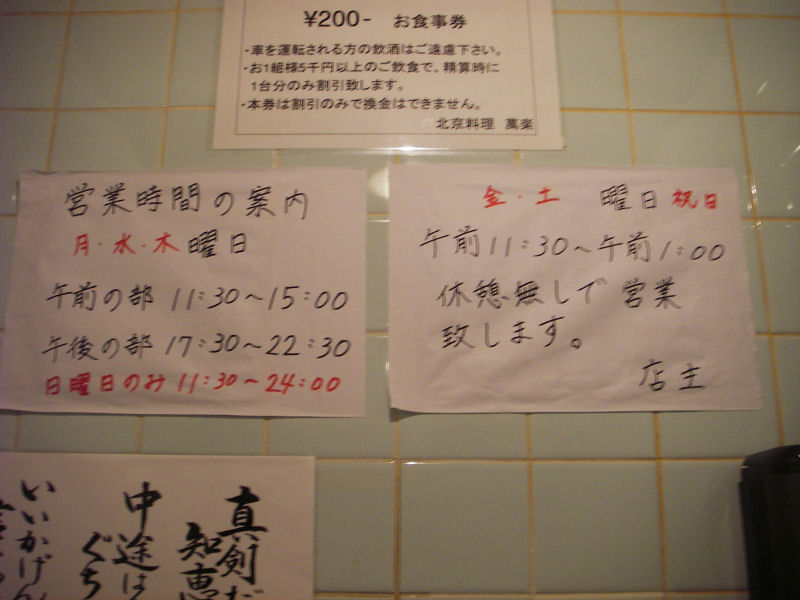 ¥200- お食事券
・車を運転される方の飲酒はご遠慮下さい。
・お1組様5千円以上のご飲食で、精算時に
1台分のみ割引致します。
・本券は割引のみで換金はできません。
北京料理 萬楽
営業時間の案内
月・水・木曜日
午前の部 11:30〜15:00
午後の部 17:30〜22:30
日曜日のみ 11:30〜24:00
金・土 曜日 祝日
午前11:30〜午前1:00
休憩無しで営業
致します。
店主
真剣だ
知恵
中途は
ぐち
いいかげん